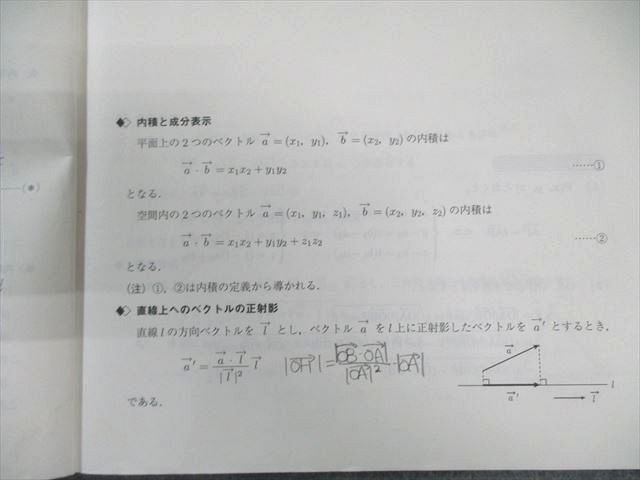 ◆◇ 内積と成分表示
平面上の2つのベクトル $\vec{a}=(x_1,\ y_1),\ \vec{b}=(x_2,\ y_2)$ の内積は
$\vec{a}\cdot\vec{b}=x_1x_2+y_1y_2$ ……①
となる.
空間内の2つのベクトル $\vec{a}=(x_1,\ y_1,\ z_1),\ \vec{b}=(x_2,\ y_2,\ z_2)$ の内積は
$\vec{a}\cdot\vec{b}=x_1x_2+y_1y_2+z_1z_2$ ……②
となる.
(注) ①, ②は内積の定義から導かれる.
◆◇ 直線上へのベクトルの正射影
直線 $l$ の方向ベクトルを $\vec{l}$ とし, ベクトル $\vec{a}$ を $l$ 上に正射影したベクトルを $\vec{a}'$ とするとき,
$\vec{a}'=\frac{\vec{a}\cdot\vec{l}}{|\vec{l}|^2}\vec{l}$ $|\overrightarrow{OH}|=\frac{|\overrightarrow{OB}\cdot\overrightarrow{OA}|}{|\overrightarrow{OA}|^2}\cdot|\overrightarrow{OA}|$
である.
$\vec{a}$
$l$
$\vec{a}'$
$\vec{l}$